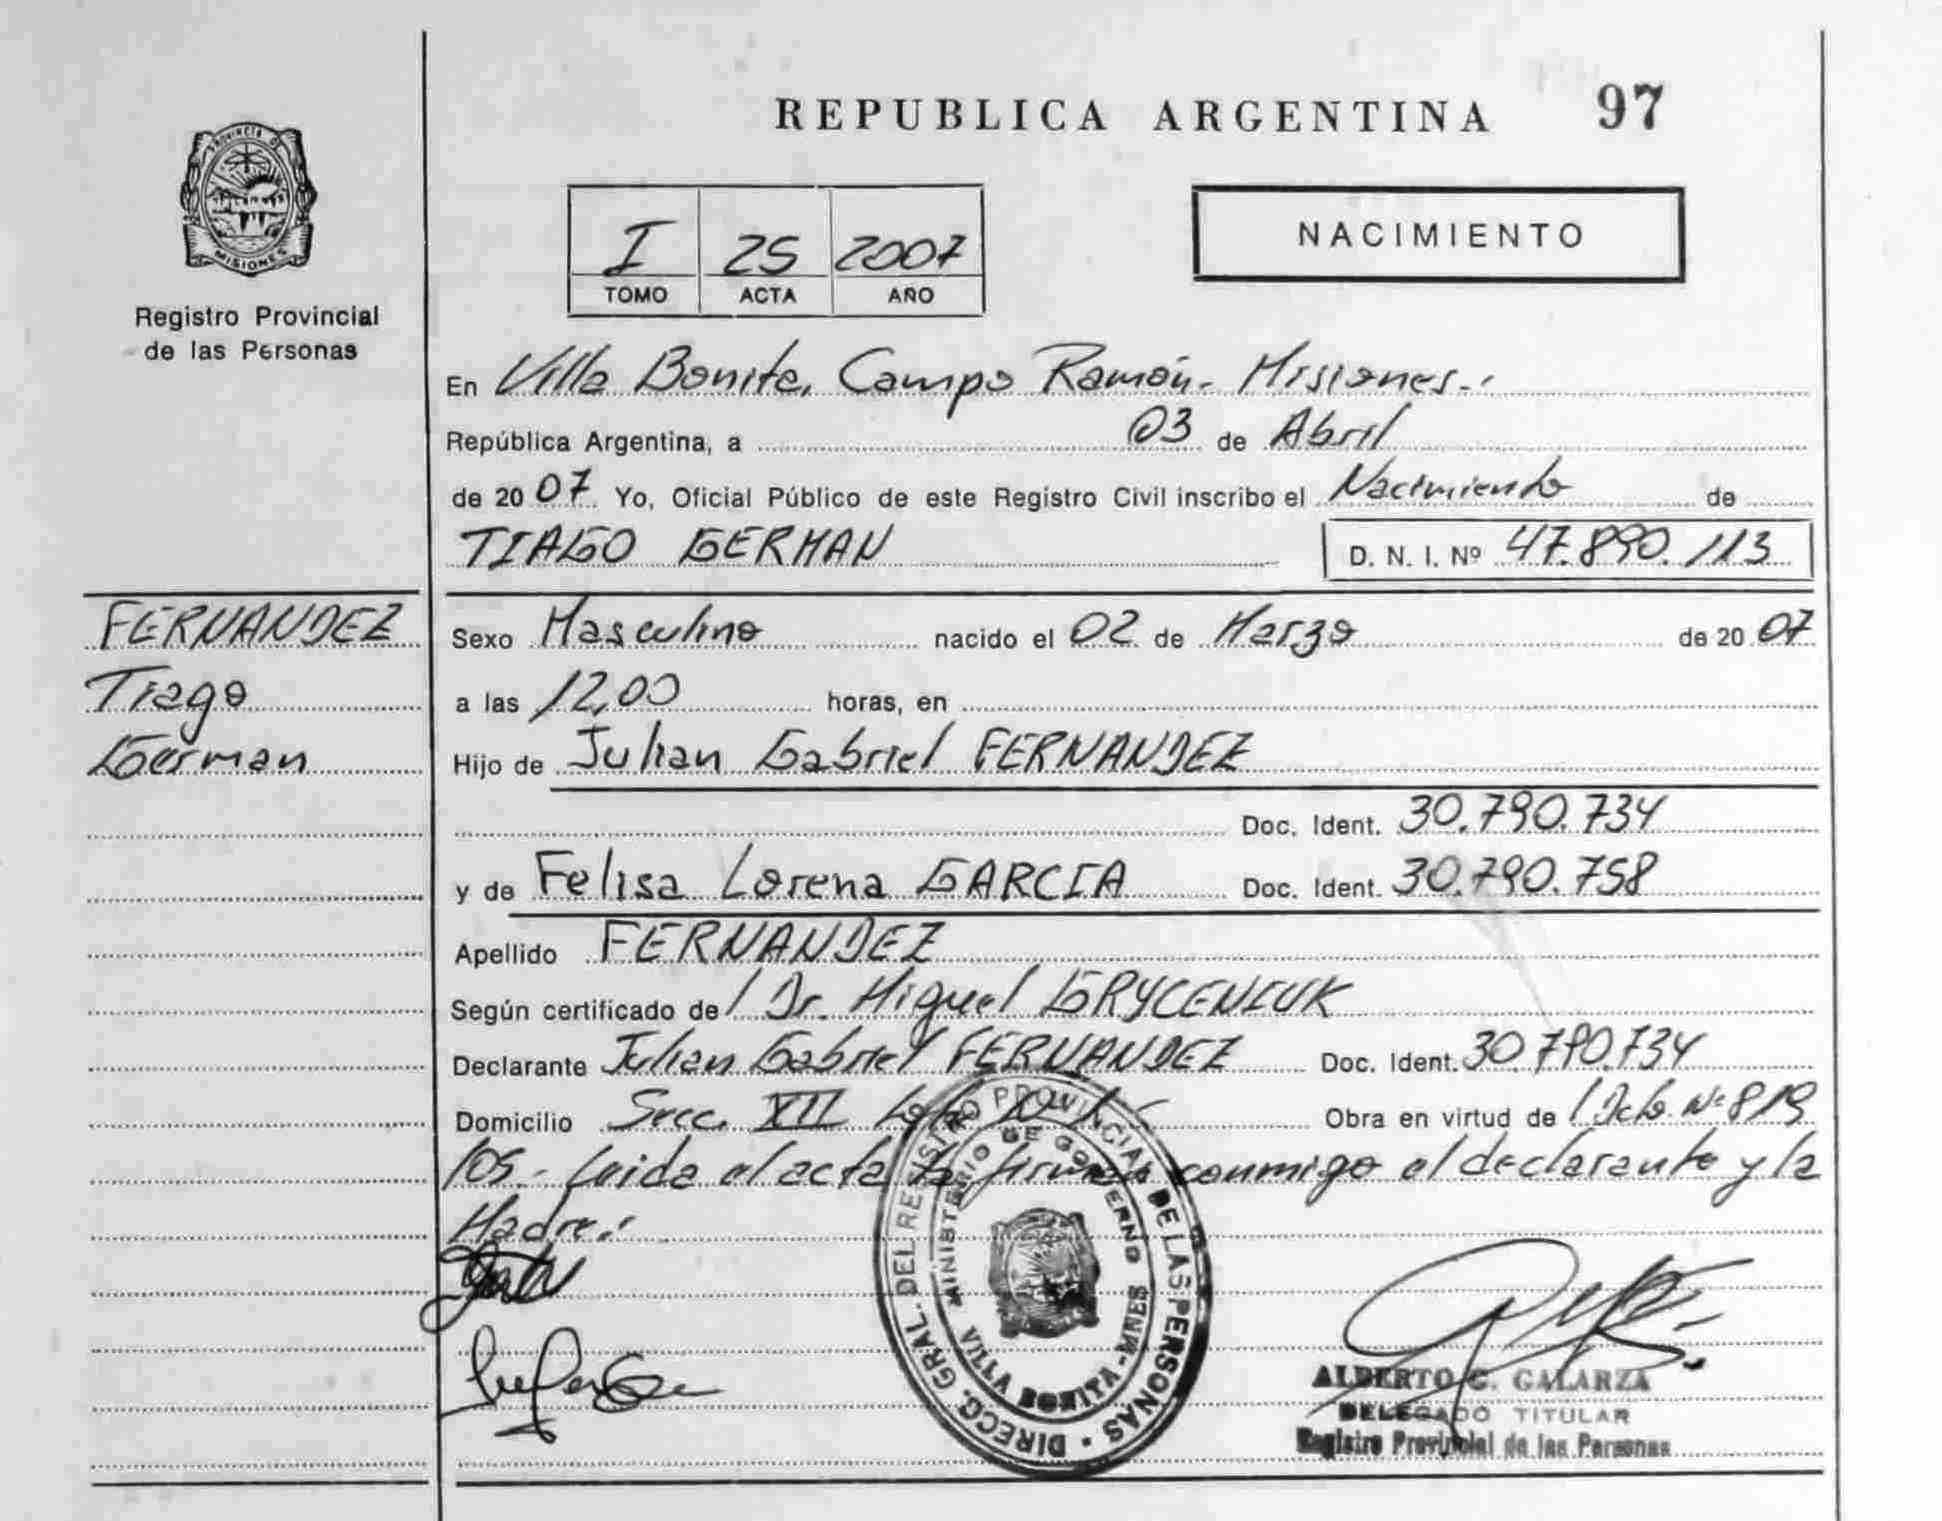 REPUBLICA ARGENTINA 97
PROVINCIA DE
MISIONES
Registro Provincial
de las Personas
I 25 2007
TOMO ACTA AÑO
NACIMIENTO
En Villa Bonita, Campo Ramón - Misiones.-
República Argentina, a 03 de Abril
de 2007 Yo, Oficial Público de este Registro Civil inscribo el Nacimiento de
TIAGO GERMAN D. N. I. Nº 47.890.113
FERNANDEZ
Tiago
German
Sexo Masculino nacido el 02 de Marzo de 2007
a las 12,00 horas, en
Hijo de Julian Gabriel FERNANDEZ
Doc. Ident. 30.790.734
y de Felisa Lorena GARCIA Doc. Ident. 30.790.758
Apellido FERNANDEZ
Según certificado de / Dr. Miguel GRYCENIUK
Declarante Julian Gabriel FERNANDEZ Doc. Ident. 30.790.734
Domicilio Secc. XII Obra en virtud de / Dcto. Nº 819
/05.- Leida el acta la firman conmigo el declarante y la
Madre.-
DIRECC. GRAL. DEL REGISTRO PROVINCIAL DE LAS PERSONAS
MINISTERIO DE GOBIERNO
VILLA BONITA - MNES
ALBERTO C. GALARZA
DELEGADO TITULAR
Registro Provincial de las Personas